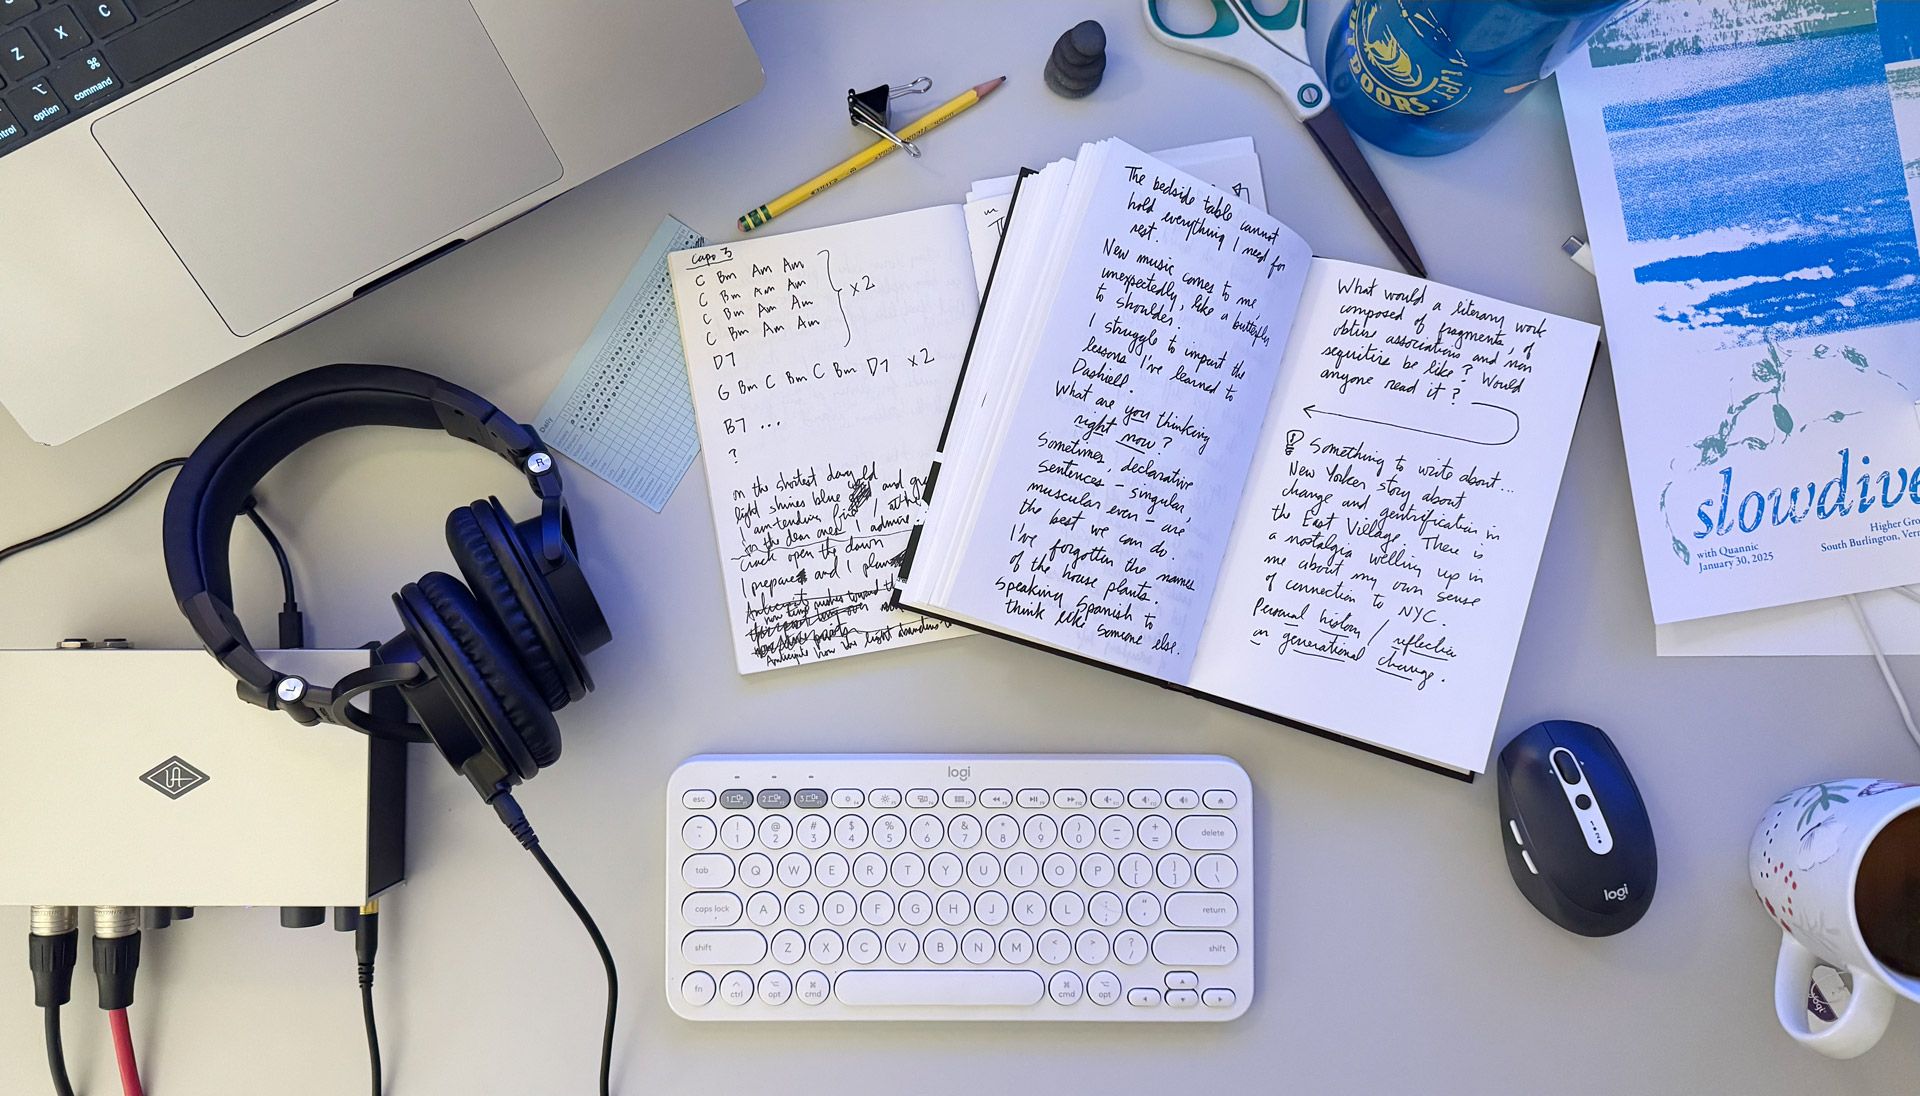 Z
X
C
control
option
command
capo 3
C Bm Am Am
C Bm Am Am
C Bm Am Am
C Bm Am Am
x2
D7
G Bm C Bm C Bm D7 x2
B7 ...
?
on the shortest day
light shines blue and
I am tending
on the dear ones I admire
Crack open the dawn
I prepare and I plan
Anticipate how the light
Daily
The bedside table cannot
hold everything I need for
rest.
New music comes to me
unexpectedly, like a butterfly
to shoulder.
I struggle to impart the
lessons I've learned to
Dashiell.
What are you thinking
right now?
Sometimes, declarative
sentences – singular,
muscular even – are
the best we can do.
I've forgotten the names
of the house plants.
Speaking Spanish to
think like someone else.
What would a literary work
composed of fragments, of
obtuse associations and non
sequitirs be like? Would
anyone read it?
Something to write about...
New Yorker story about
change and gentrification in
the East Village. There is
a nostalgia welling up in
me about my own sense
of connection to NYC.
Personal history / reflection
on generational change.
DOORS
slowdive
with Quannic
January 30, 2025
Higher Gro
South Burlington, Verm
R
L
UA
logi
esc 1 2 3
~ ! @ # $ % ^ & * ( ) _ +
` 1 2 3 4 5 6 7 8 9 0 - = delete
tab Q W E R T Y U I O P { [ } ] | \
caps lock A S D F G H J K L : ; " ' return
shift Z X C V B N M < , > . ? / shift
fn ctrl opt cmd cmd opt
1 2
logi
yogi